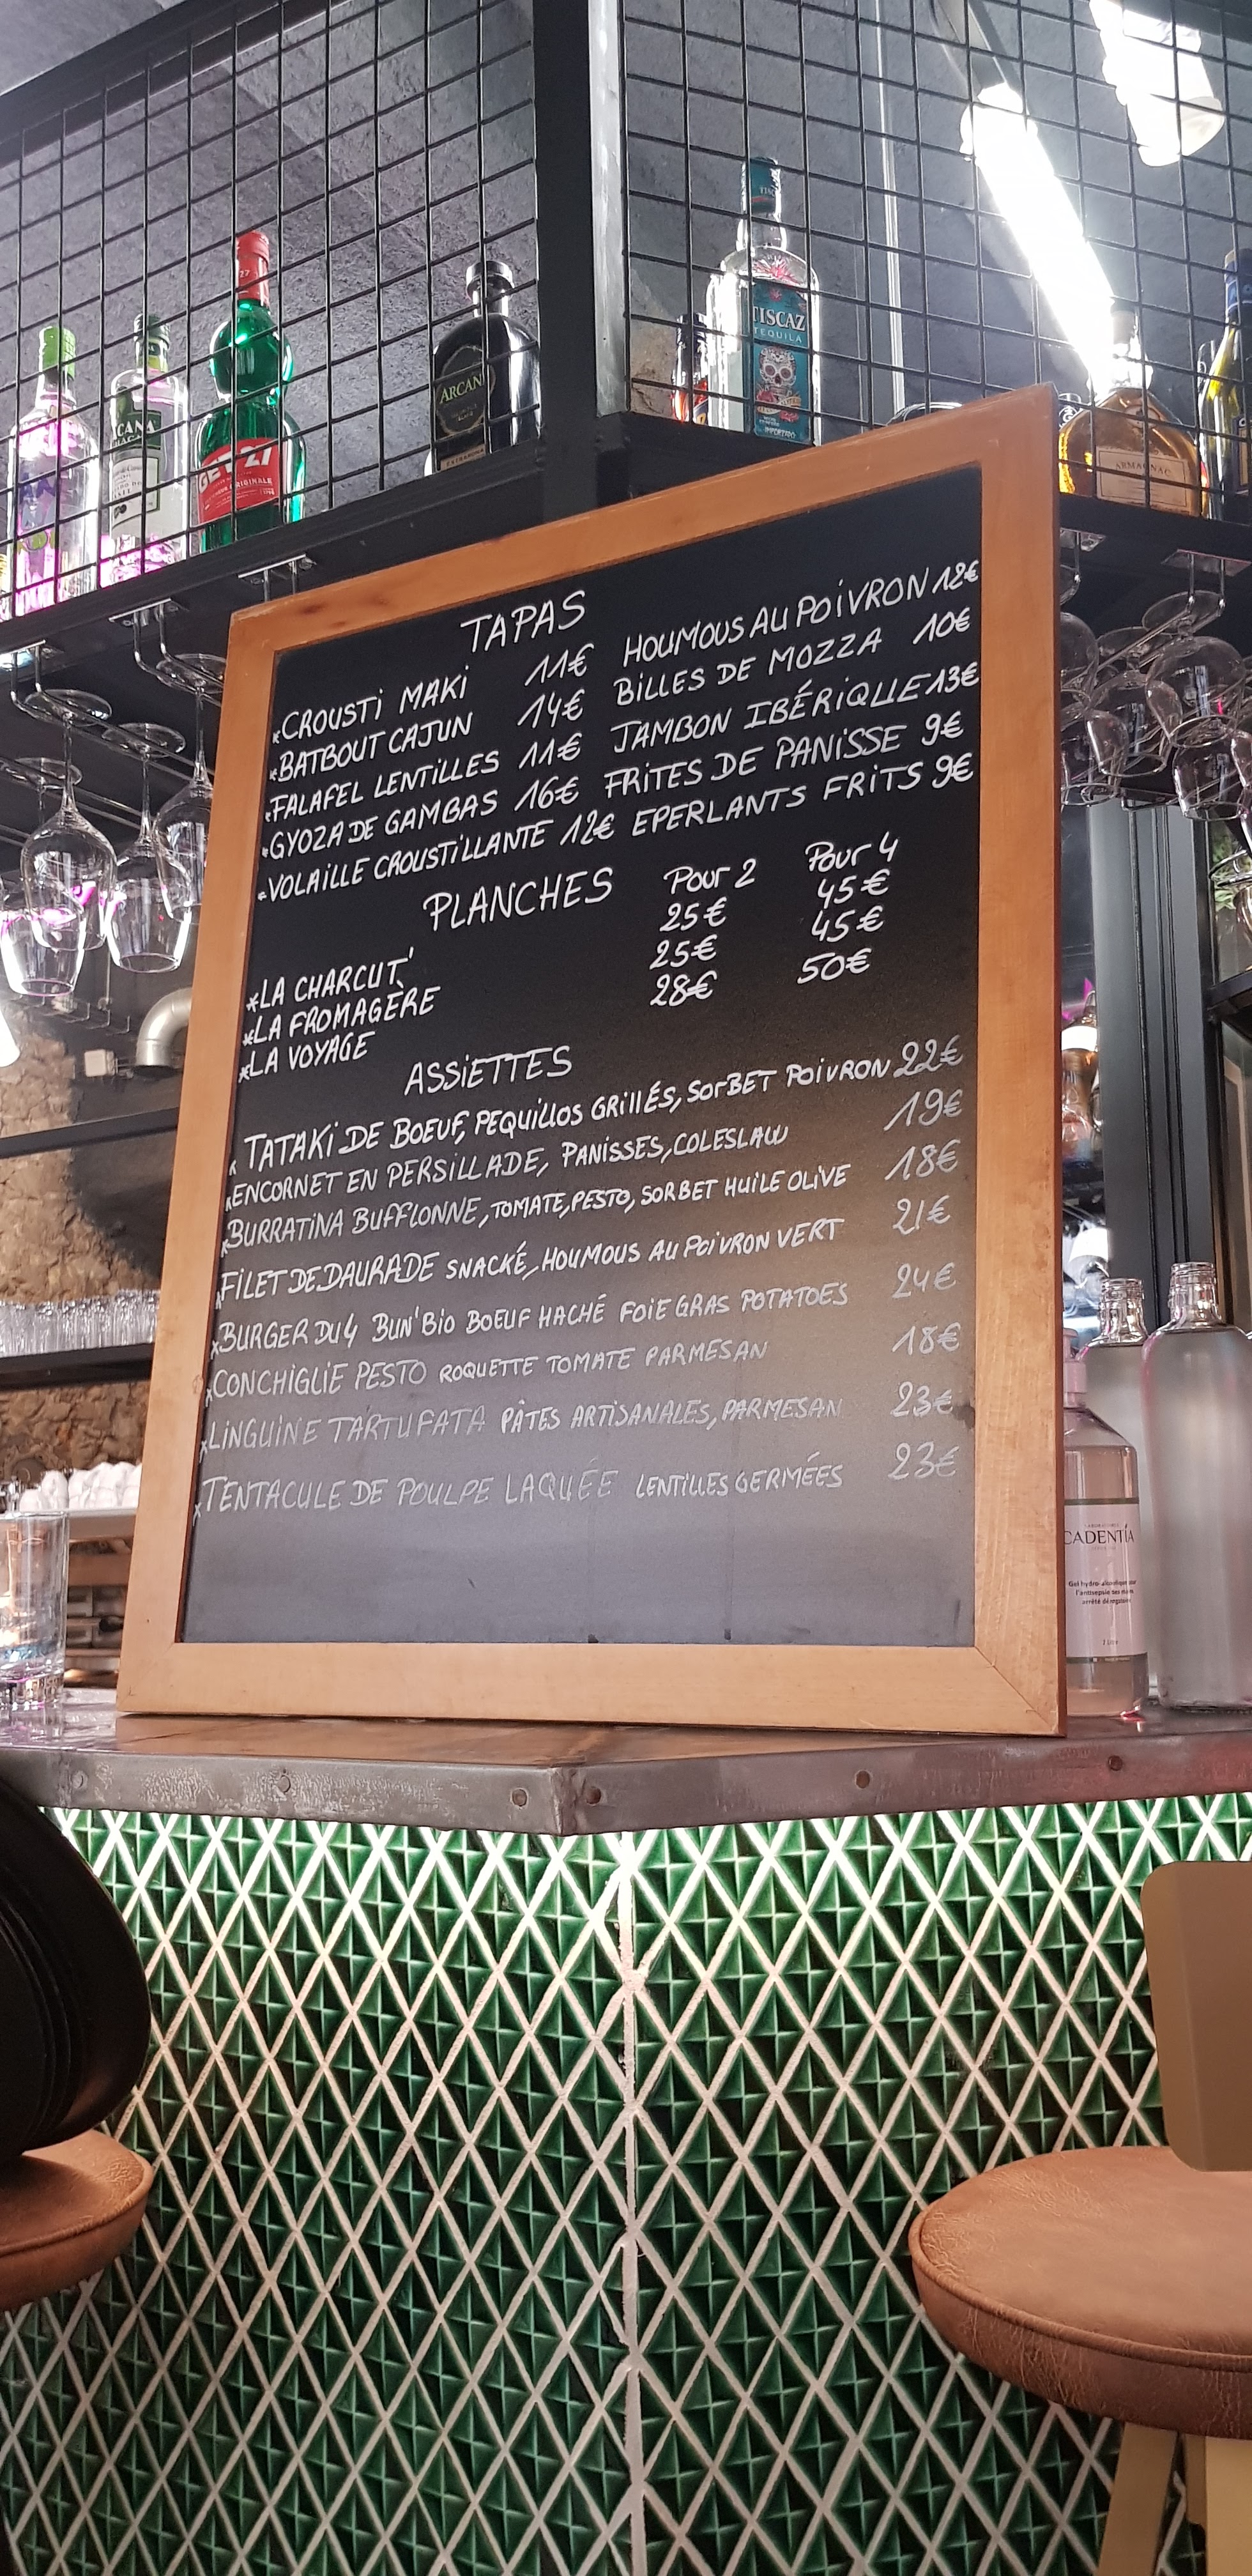 27
GET 27
ORIGINALE
ARCANE
EXTRAROMA
TISCAZ
TEQUILA
IMPORTADO
ARMAGNAC
TAPAS
*CROUSTI MAKI 11€ HOUMOUS AU POIVRON 12€
*BATBOUT CAJUN 14€ BILLES DE MOZZA 10€
*FALAFEL LENTILLES 11€ JAMBON IBÉRIQUE 13€
*GYOZA DE GAMBAS 16€ FRITES DE PANISSE 9€
*VOLAILLE CROUSTILLANTE 12€ EPERLANTS FRITS 9€
PLANCHES Pour 2 Pour 4
*LA CHARCUT' 25€ 45€
*LA FROMAGÈRE 25€ 45€
*LA VOYAGE 28€ 50€
ASSIETTES
*TATAKI DE BOEUF, PEQUILLOS GRILLÉS, SORBET POIVRON 22€
*ENCORNET EN PERSILLADE, PANISSES, COLESLAW 19€
*BURRATINA BUFFLONNE, TOMATE, PESTO, SORBET HUILE OLIVE 18€
*FILET DE DAURADE SNACKÉ, HOUMOUS AU POIVRON VERT 21€
*BURGER DU 4 BUN'BIO BOEUF HACHÉ FOIE GRAS POTATOES 24€
*CONCHIGLIE PESTO ROQUETTE TOMATE PARMESAN 18€
*LINGUINE TARTUFATA PÂTES ARTISANALES, PARMESAN 23€
*TENTACULE DE POULPE LAQUÉE LENTILLES GERMÉES 23€
CADENTÍA
Gel hydro-alcoolique pour
l'antisepsie des mains